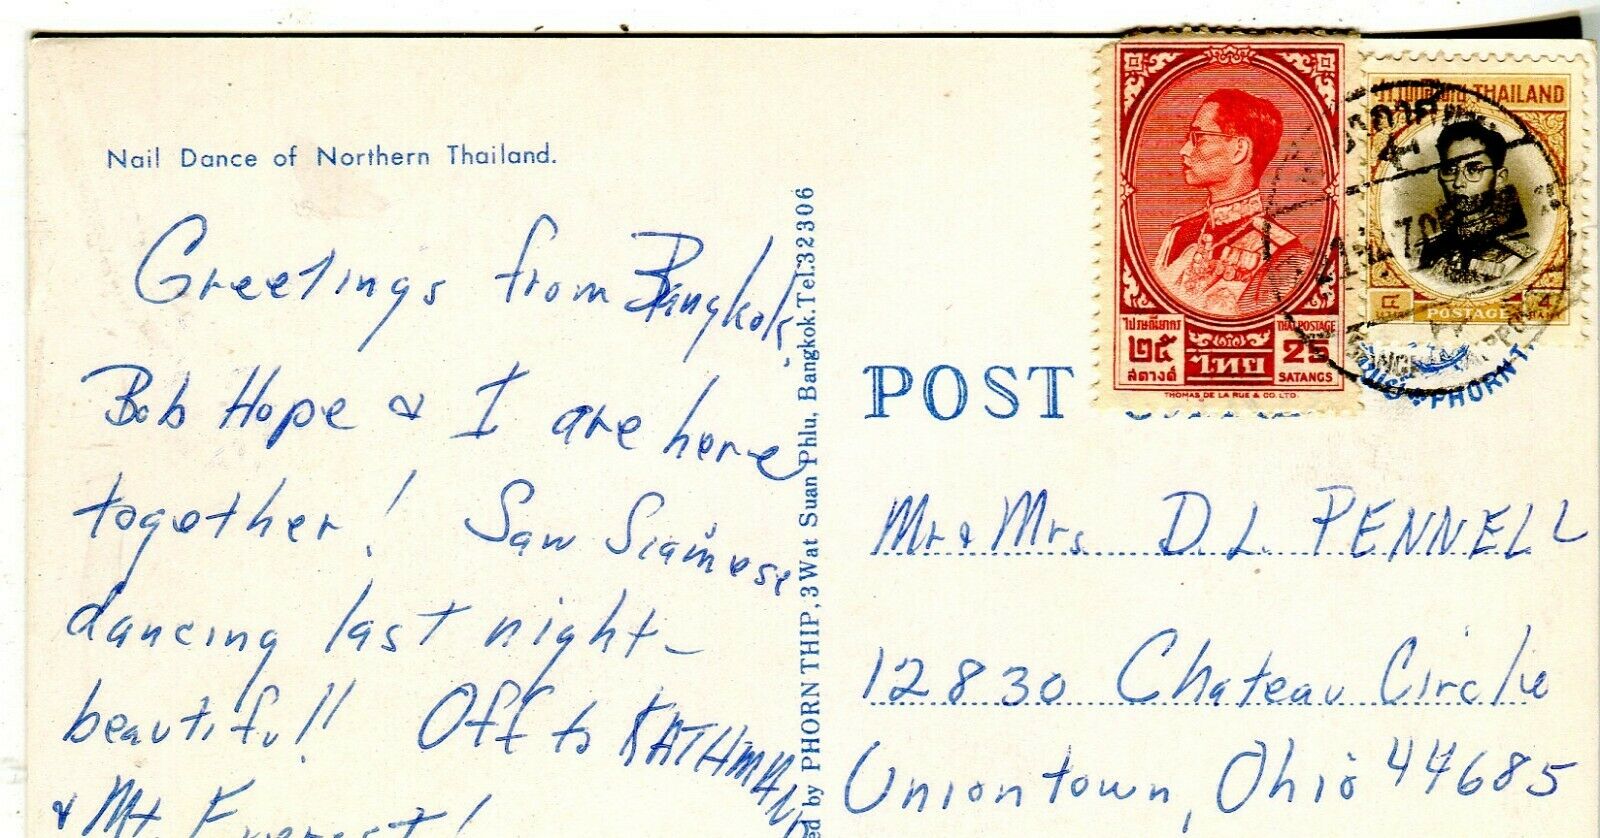 Nail Dance of Northern Thailand.
Greetings from Bangkok,
Bob Hope & I are here
together! Saw Siamese
dancing last night -
beautiful! Off to KATHMAND
& Mt. Everest!
ed by PHORN THIP, 3 Wat Suan Phlu, Bangkok. Tel. 32306
POST
ไปรษณียากร THAI POSTAGE
๒๕ ไทย 25
สตางค์ SATANGS
THOMAS DE LA RUE & CO. LTD.
THAILAND
POSTAGE
PHORN T.
Mr & Mrs D. L. PENNELL
12830 Chateau Circle
Uniontown, Ohio 44685